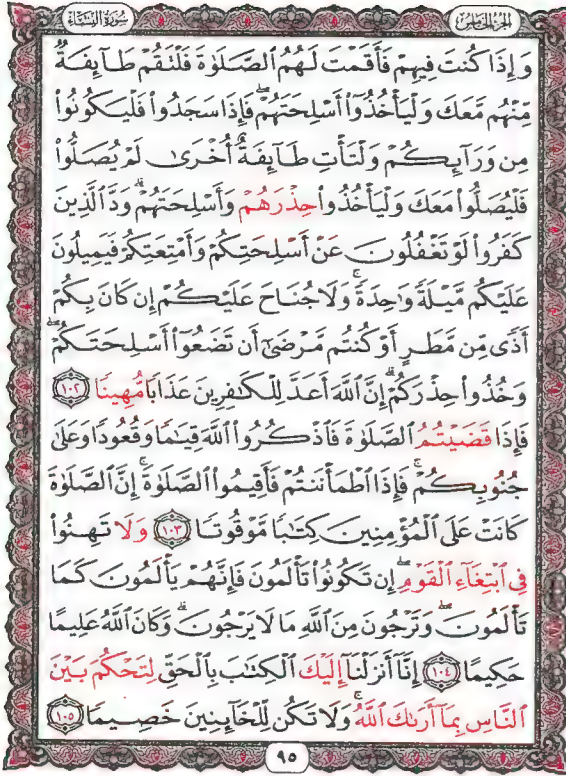 الجزء الخامس
سورة النساء
وَإِذَا كُنتَ فِيهِمْ فَأَقَمْتَ لَهُمُ ٱلصَّلَوٰةَ فَلْتَقُمْ طَآئِفَةٌ
مِّنْهُم مَّعَكَ وَلْيَأْخُذُوٓا۟ أَسْلِحَتَهُمْۖ فَإِذَا سَجَدُوا۟ فَلْيَكُونُوا۟
مِن وَرَآئِكُمْ وَلْتَأْتِ طَآئِفَةٌ أُخْرَىٰ لَمْ يُصَلُّوا۟
فَلْيُصَلُّوا۟ مَعَكَ وَلْيَأْخُذُوا۟ حِذْرَهُمْ وَأَسْلِحَتَهُمْۗ وَدَّ ٱلَّذِينَ
كَفَرُوا۟ لَوْ تَغْفُلُونَ عَنْ أَسْلِحَتِكُمْ وَأَمْتِعَتِكُمْ فَيَمِيلُونَ
عَلَيْكُم مَّيْلَةً وَٰحِدَةًۚ وَلَا جُنَاحَ عَلَيْكُمْ إِن كَانَ بِكُمْ
أَذًى مِّن مَّطَرٍ أَوْ كُنتُم مَّرْضَىٰٓ أَن تَضَعُوٓا۟ أَسْلِحَتَكُمْۖ
وَخُذُوا۟ حِذْرَكُمْۗ إِنَّ ٱللَّهَ أَعَدَّ لِلْكَٰفِرِينَ عَذَابًا مُّهِينًا ١٠٢
فَإِذَا قَضَيْتُمُ ٱلصَّلَوٰةَ فَٱذْكُرُوا۟ ٱللَّهَ قِيَٰمًا وَقُعُودًا وَعَلَىٰ
جُنُوبِكُمْۚ فَإِذَا ٱطْمَأْنَنتُمْ فَأَقِيمُوا۟ ٱلصَّلَوٰةَۚ إِنَّ ٱلصَّلَوٰةَ
كَانَتْ عَلَى ٱلْمُؤْمِنِينَ كِتَٰبًا مَّوْقُوتًا ١٠٣ وَلَا تَهِنُوا۟
فِى ٱبْتِغَآءِ ٱلْقَوْمِۖ إِن تَكُونُوا۟ تَأْلَمُونَ فَإِنَّهُمْ يَأْلَمُونَ كَمَا
تَأْلَمُونَۖ وَتَرْجُونَ مِنَ ٱللَّهِ مَا لَا يَرْجُونَۗ وَكَانَ ٱللَّهُ عَلِيمًا
حَكِيمًا ١٠٤ إِنَّآ أَنزَلْنَآ إِلَيْكَ ٱلْكِتَٰبَ بِٱلْحَقِّ لِتَحْكُمَ بَيْنَ
ٱلنَّاسِ بِمَآ أَرَىٰكَ ٱللَّهُۚ وَلَا تَكُن لِّلْخَآئِنِينَ خَصِيمًا ١٠٥
٩٥